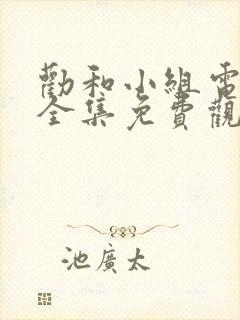 勸和小組電
全集免費觀
池廣太